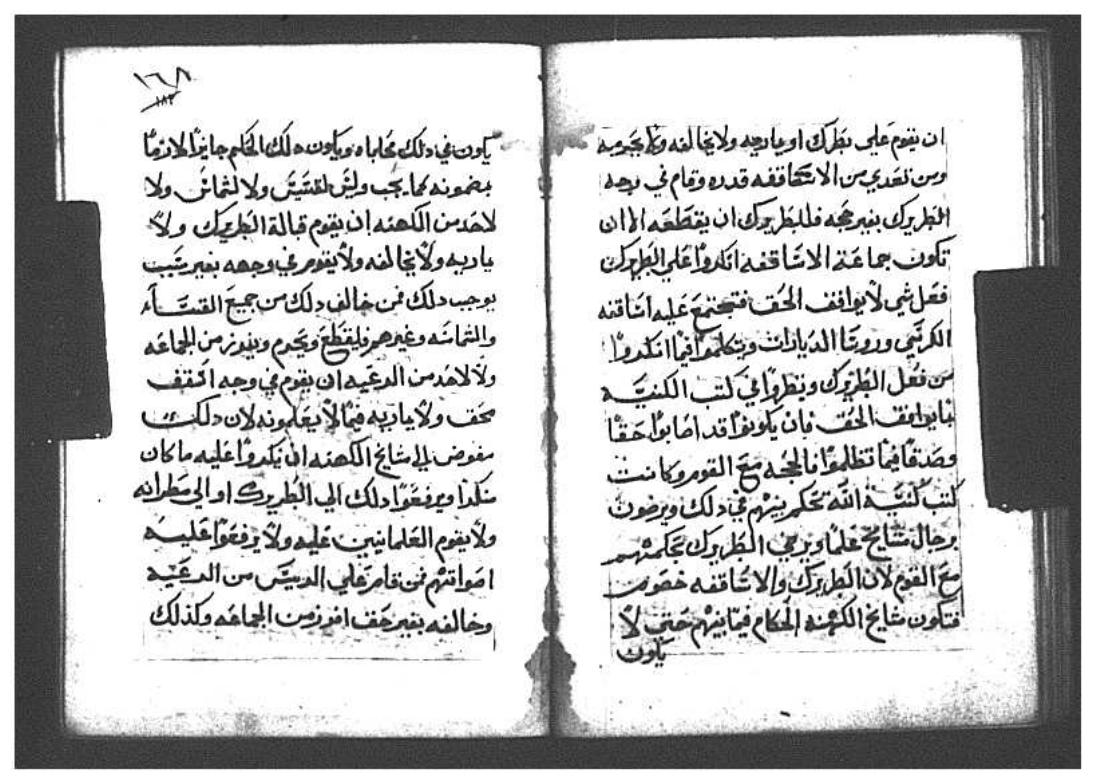 ان يقوم على بطرك او ياديه ولا يخالفه ولا يحرمه
ومن تعدي من الاساقفه قدره وقام في وجه
البطريرك بغير حجه فللبطريرك ان يقطعه الا ان
تكون جماعة الاساقفه انكروا على البطريرك
فعل شي لا يوافق الحق فتجتمع عليه اساقفه
الكرسي وروسا الديارات ويتكلموا فيما انكروا
من فعل البطريرك وينظروا في كتب الكنيسة
بما يوافق الحق فان يكونوا قد اصابوا حقا
وصدقا فيما تظلموا فالحجه مع القوم وكانت
كتب كنيسة الله تحكم بينهم في ذلك ويرضون
برجال مشايخ علما ويرضي البطريرك بحكمهم
مع القوم لان البطريرك والاساقفه خصوم
فتكون مشايخ الكهنه الحكام فيما بينهم حتى لا
يكون
١٦٨
١٨٢
يكون في ذلك محاباه ويكون ذلك الحكم جايزا لازما
بمضمونه كما يجب وليس لقسيس ولا لشماس ولا
لاحد من الكهنه ان يقوم قبالة البطريرك ولا
ياديه ولا يخالفه ولا يقوم في وجهه بغير سبب
يوجب ذلك فمن خالف ذلك من جميع القسساء
والشمامسه وغيرهم فليقطع ويحرم ويفرز من الجماعه
ولا لاحد من الرعيه ان يقوم في وجه اسقف
بحق ولا ياديه فيما لا يعلمونه لان ذلك
مفوض الي مشايخ الكهنه ان ينكروا عليه ما كان
منكرا ويرفعوا ذلك الي البطريرك او الي مطرانه
ولا يقوم العلمانيين عليه ولا يرفعوا عليه
اصواتهم فمن قام علي الرييس من الرعيه
وخالفه بغير حق افرز من الجماعه وكذلك